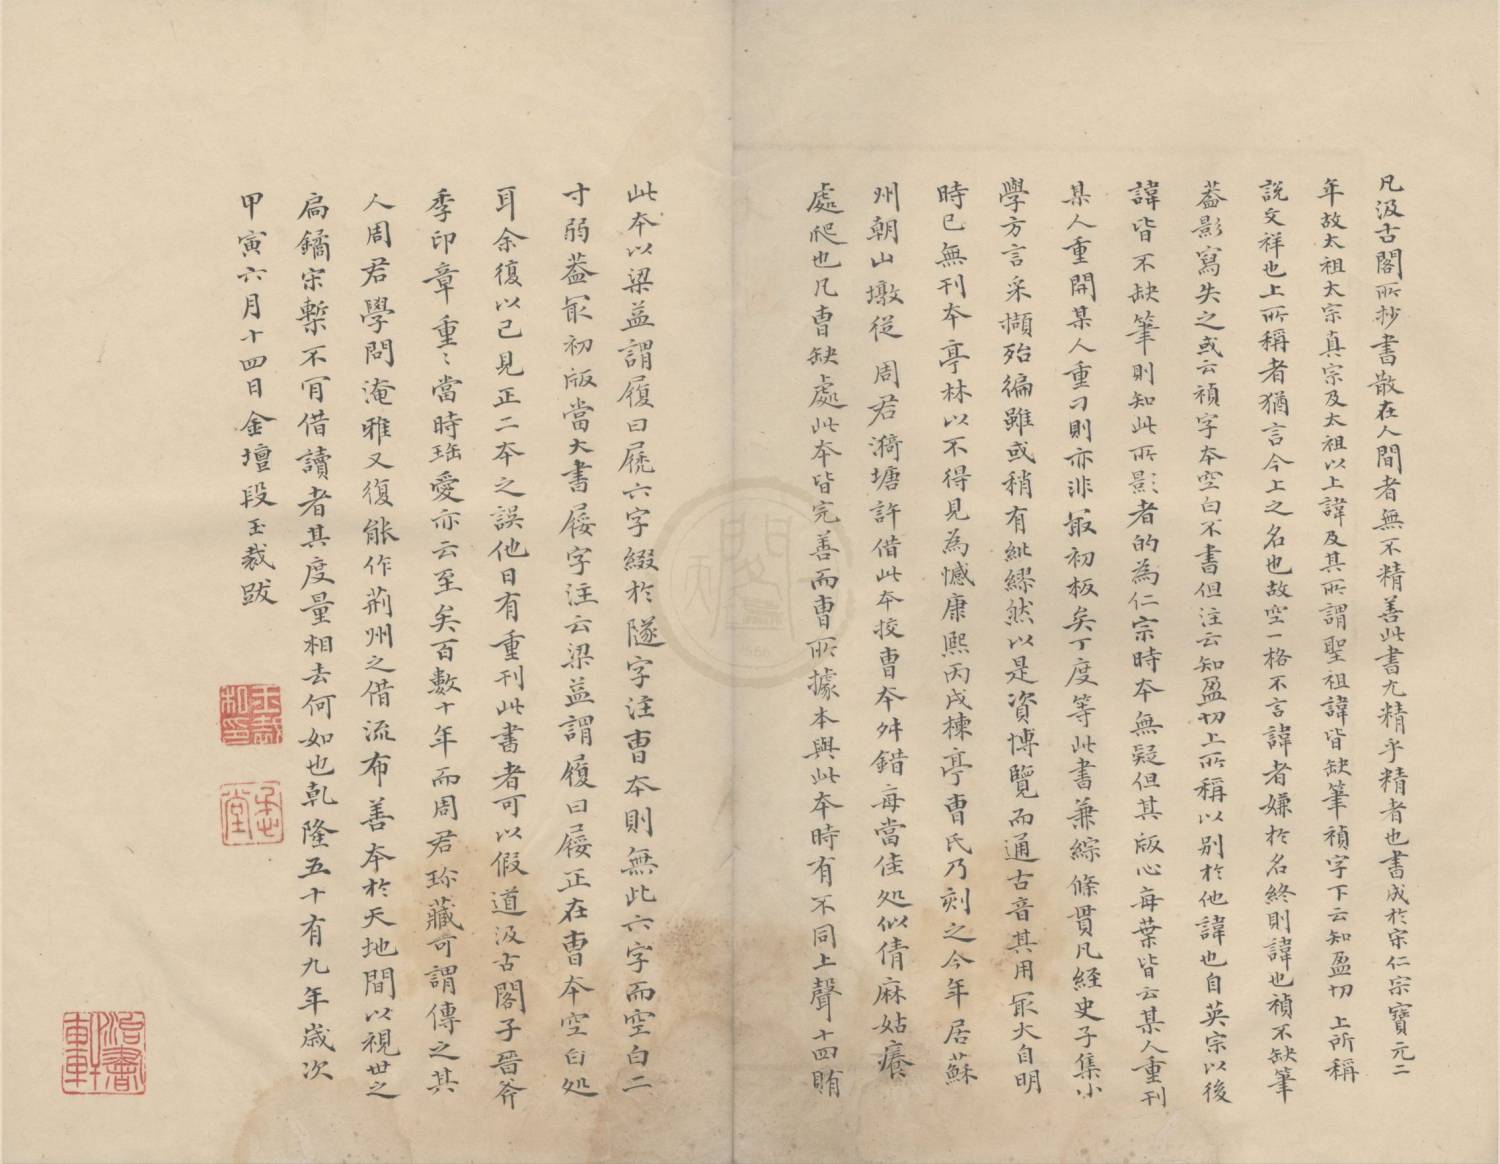 凡汲古閣所抄書散在人間者無不精善此書尤精乎精者也書成於宋仁宗寶元二
年故太祖太宗真宗及太祖以上諱及其所謂聖祖諱皆缺筆禎字下云知盈切 上所稱
說文祥也上所稱者猶言今上之名也故空一格不言諱者嫌於名終則諱也禎不缺筆
蓋影寫失之或云禎字本空白不書但注云知盈切上所稱以別於他諱也自英宗以後
諱皆不缺筆則知此所影者的為仁宗時本無疑但其版心每葉皆云某人重刊
某人重開某人重刁則亦非最初板矣丁度等此書兼綜條貫凡經史子集小
學方言采擷殆徧雖或稍有紕繆然以是資博覽而通古音其用最大自明
時已無刊本亭林以不得見為憾康熙丙戌楝亭曹氏乃刻之今年居蘇
州朝山墩從 周君漪塘許借此本挍曹本舛錯每當佳処似倩麻姑癢
處爬也凡曹缺處此本皆完善而曹所據本與此本時有不同上聲十四賄
此本以梁益謂履曰屣六字綴於隧字注曹本則無此六字而空白二
寸弱蓋最初版當大書屧字注云梁益謂履曰屧正在曹本空白処
耳余復以己見正二本之誤他日有重刊此書者可以假道汲古閣子晉斧
季印章重〻當時珤愛亦云至矣百數十年而周君珎藏可謂傳之其
人周君學問淹雅又復能作荊州之借流布善本於天地間以視世之
扃鐍宋槧不肎借讀者其度量相去何如也乹隆五十有九年歲次
甲寅六月十四日金壇段玉裁跋
玉裁私印